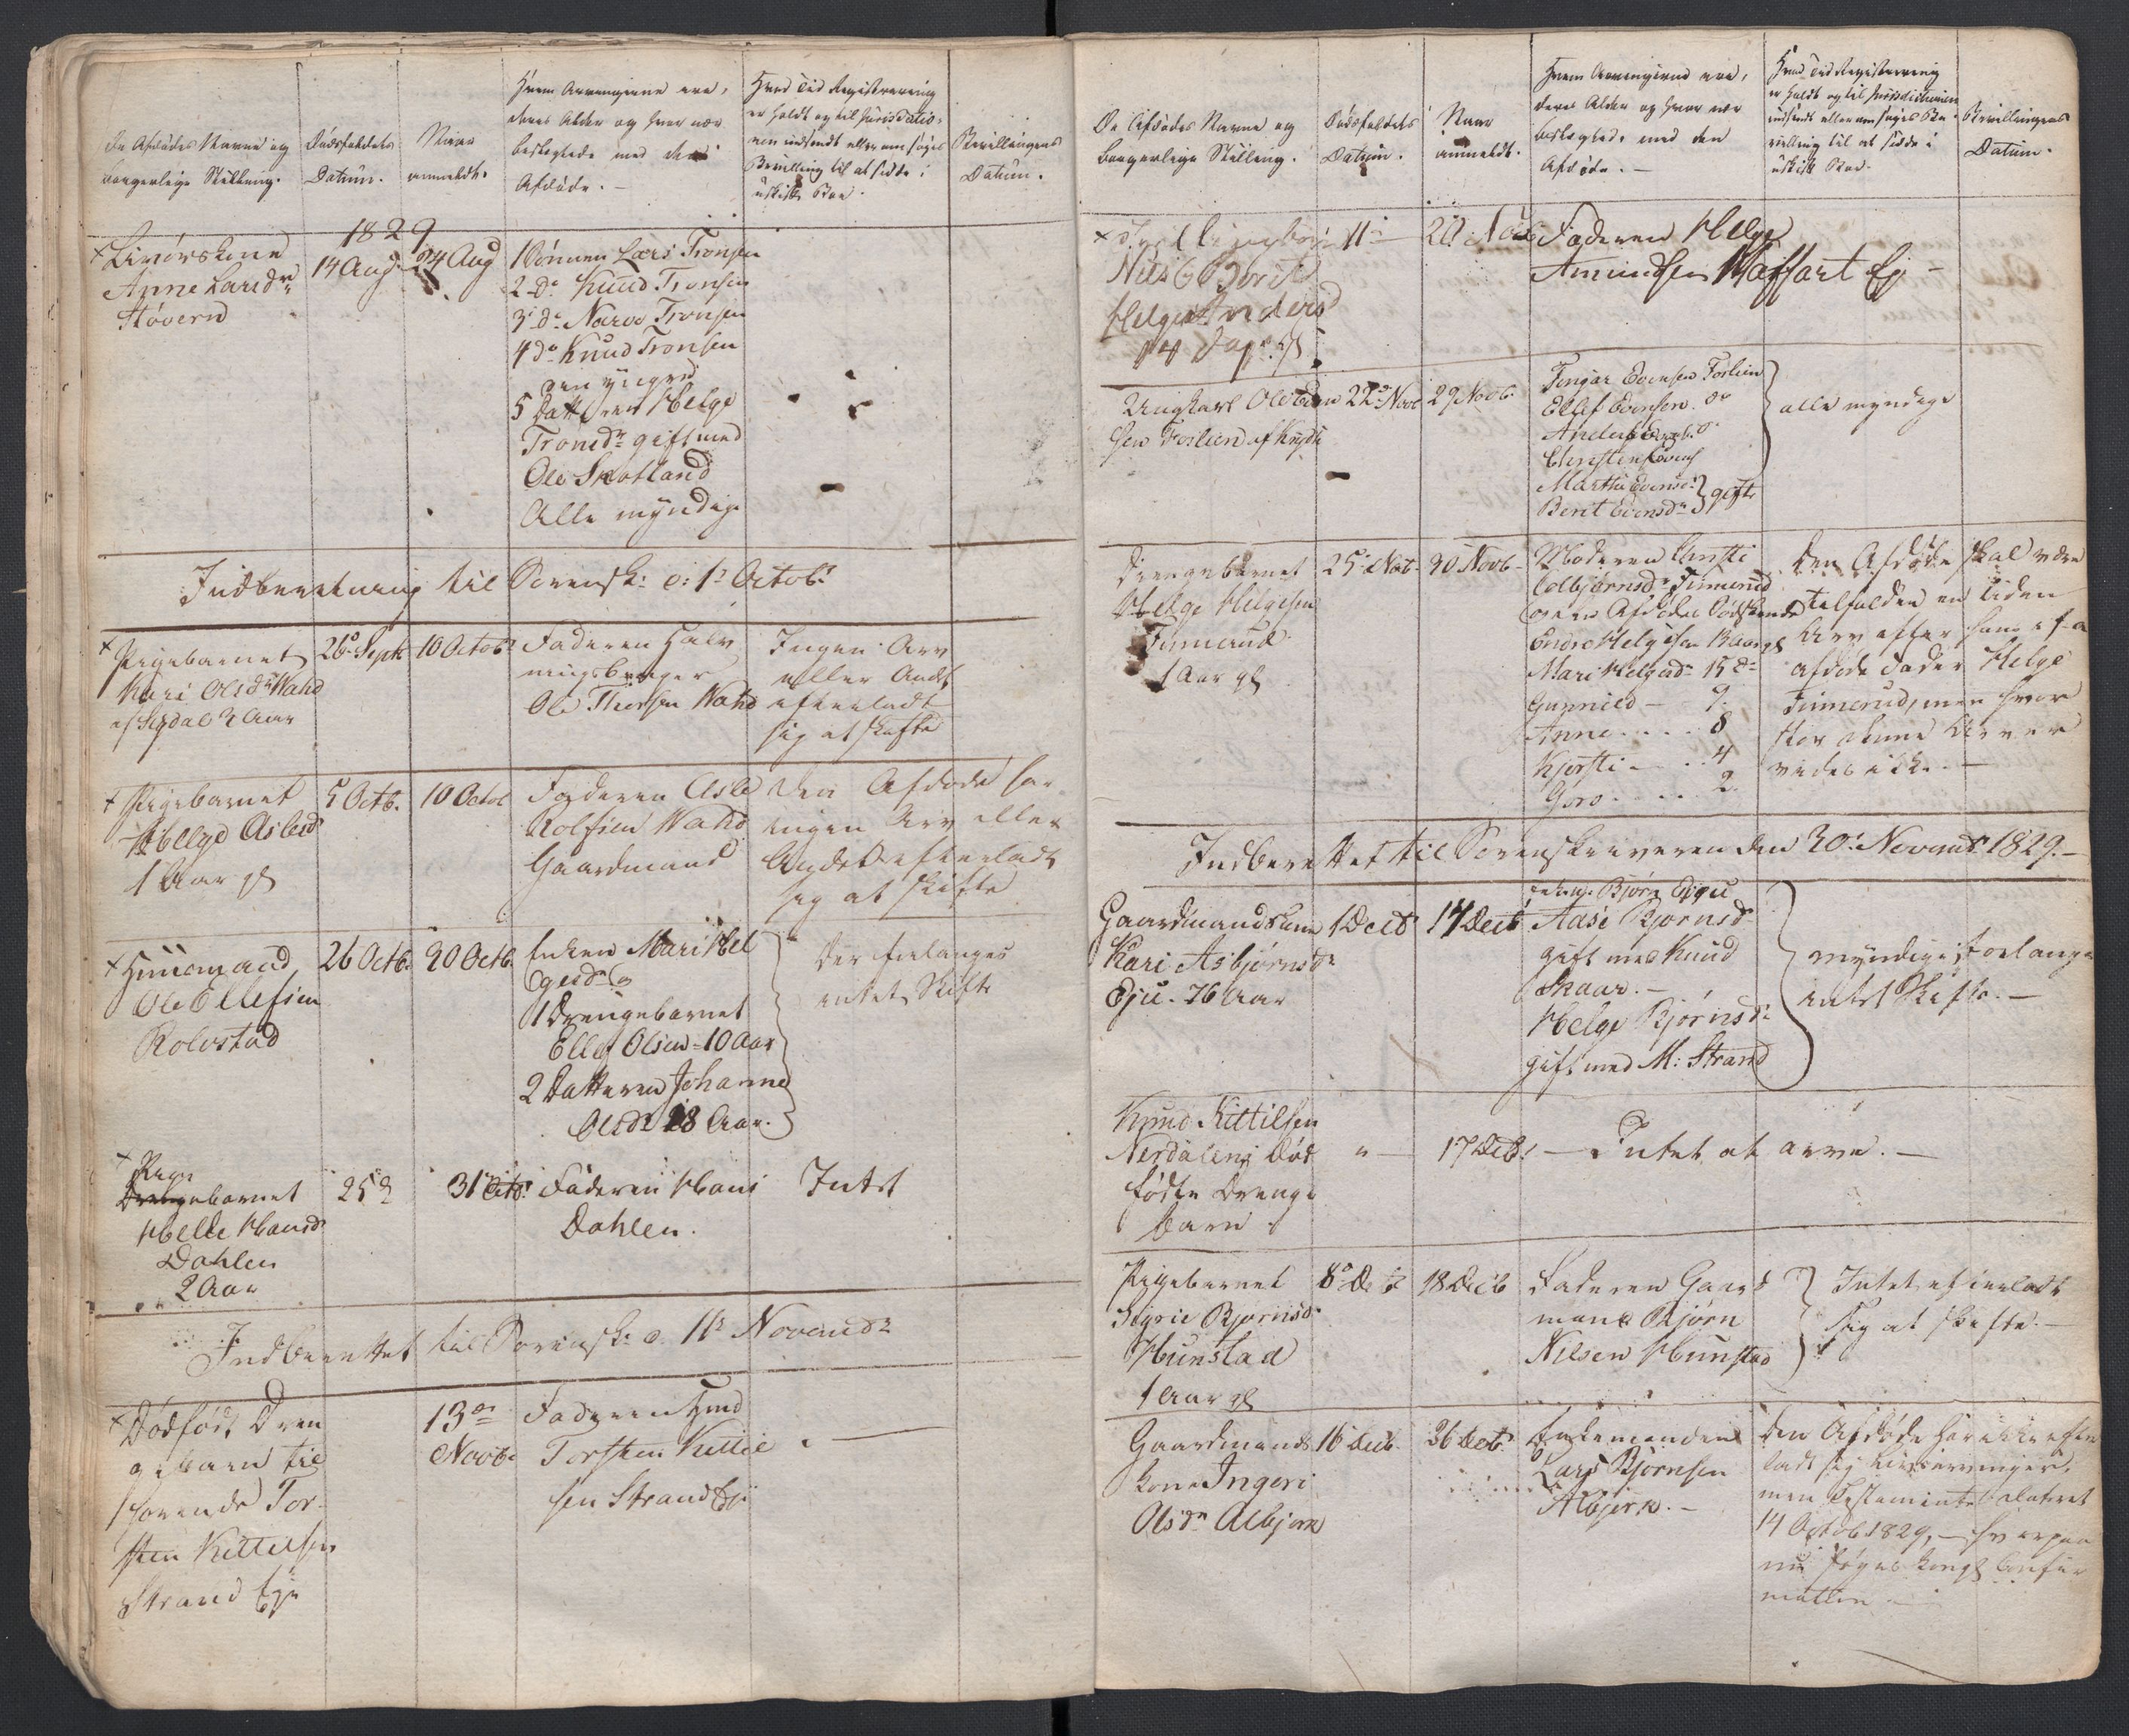 De Afdødes Navne og
borgerlige Stilling.
Dødsfaldets
Datum.
Naar
anmeldt.
Hvem Arvingerne ere,
deres Alder og hvor nær
beslegtede med den
Afdøde. -
Hvad Tid Registrering
er holdt og til Jurisdictio-
nen indsendt eller om søges
Bevilling til at sidde i
uskift Boe.
Bevillingens
Datum.
1829
Anne Larsdr
Støvern
14 Aug.
24 Aug
1 Sønnen Lars Tronsen
2 do Knud Tronsen
3 do Narve Tronsen
4 do Knud Tronsen
den yngre
5 Datteren Helge
Tronsdr gift med
Ole Skotland
Alle myndige
Indberetning til Sorensk: d: 1s Octobr
Pigebarnet
Kari Olsdr Wahd
af Sigdal 2 Aar
26 Sept
10 Octobr
Faderen
Ole Thorsen Wahd
Ingen Arv
eller Andet
efterladt
sig at skifte
Pigebarnet
Helge Aslesdr
1 Aar gl
5 Octb.
10 Octob
Faderen Asle
Rolfsen Wahd
Gaardmand
Den Afdøde har
ingen Arv eller
Andet efterladt
sig at skifte
Huusmand
Ole Ellefsen
Rolvstad
26 Octb.
30 Octb.
Enken Mari Hel
gesdr og
1 Drengebarnet
Ellef Olsen - 10 Aar
2 Datteren Johanne
Olsdr 18 Aar.
Der forlanges
intet Skifte
Pige
Drengebarnet
Helle Hansdr
Dahlen
2 Aar
25 d
31 Octb.
Faderen Hans
Dahlen.
Intet
Indberettet til Sorensk: d. 1s Novembr
Dødfødt Dren
gebarn til
hørende Tor-
sten Kittelsen
Strand Eje
13de
Novb.
Faderen
Torsten Kittil
sen Strand Eje
De Afdødes Navne og
borgerlige Stilling.
Dødsfaldets
Datum.
Naar
anmeldt.
Hvem Arvingerne ere,
deres Alder og hvor nær
beslegtede med den
Afdøde. -
Hvad Tid Registrering
er holdt og til Jurisdictionen
indsendt eller om søges Be-
villing til at sidde i
uskift Boe.
Bevillingens
Datum.
Helge Anders
14 Dage gl
11
20 Novb
Faderen Helge
Amundsen Kaffart Ej -
Ungkarl Ole Even
sen Foslien af Krydsh
22 Novb
29 Novb.
Tingar Evensen Foslien
Ellef Evensen do
Anders Evens. do
Christen Evens
Marthe Evensd
Berit Evensdr
gifte
alle myndige
Drengebarnet
Helge Helgesen
Finnerud
1 Aar gl
25 Nov.
30 Novb -
Moderen Kirsti
Colbjørnsdr Finnerud
og den Afdødes Sødskende
Endre Helgesen
Mari Helgesdr 15 do
Gunnild - 9.
Anne .... 8
Kjersti .... 4
Goro .... 2.
Den Afdøde skal være
tilfalden en liden
Arv efter sin
afdøde Fader Helge
Finnerud, men hvor
stor denne Arv er
vides ikke. -
Indberettet til Sorenskriveren den 30. Novembr 1829. -
Gaardmandskone
Kari Asbjørnsdr
Eju. 76 Aar
1 Decb
17 Decb
Enkem. Bjørn Eju
Aase Bjørnsdr
gift med Knud
Skaar. -
Helge Bjørnsdr
gift med M: Strand
myndige, forlange
intet Skifte. -
Knud Kittilsen
Nerdalens Død
fødte Drenge
barn
" -
17 Decb. -
Intet at arve. -
Pigebarnet
Sigrie Bjørnsdr
Hunstad
1 Aar gl
8 Decb
18 Decb
Faderen Gaard
mand Bjørn
Nilsen Hunstad
Intet efterladt
sig at skifte. -
Gaardmands
kone Ingeri
Olsdr Albjerk
16 Decb
26 Decb.
Enkemanden
Lars Bjørnsen
Albjerk. -
Den Afdøde har ikke efter
ladt sig Livsarvinger,
men Testamentet dateret
14 Octob 1829, - hvorpaa
nu søges kongl Confir
mation -